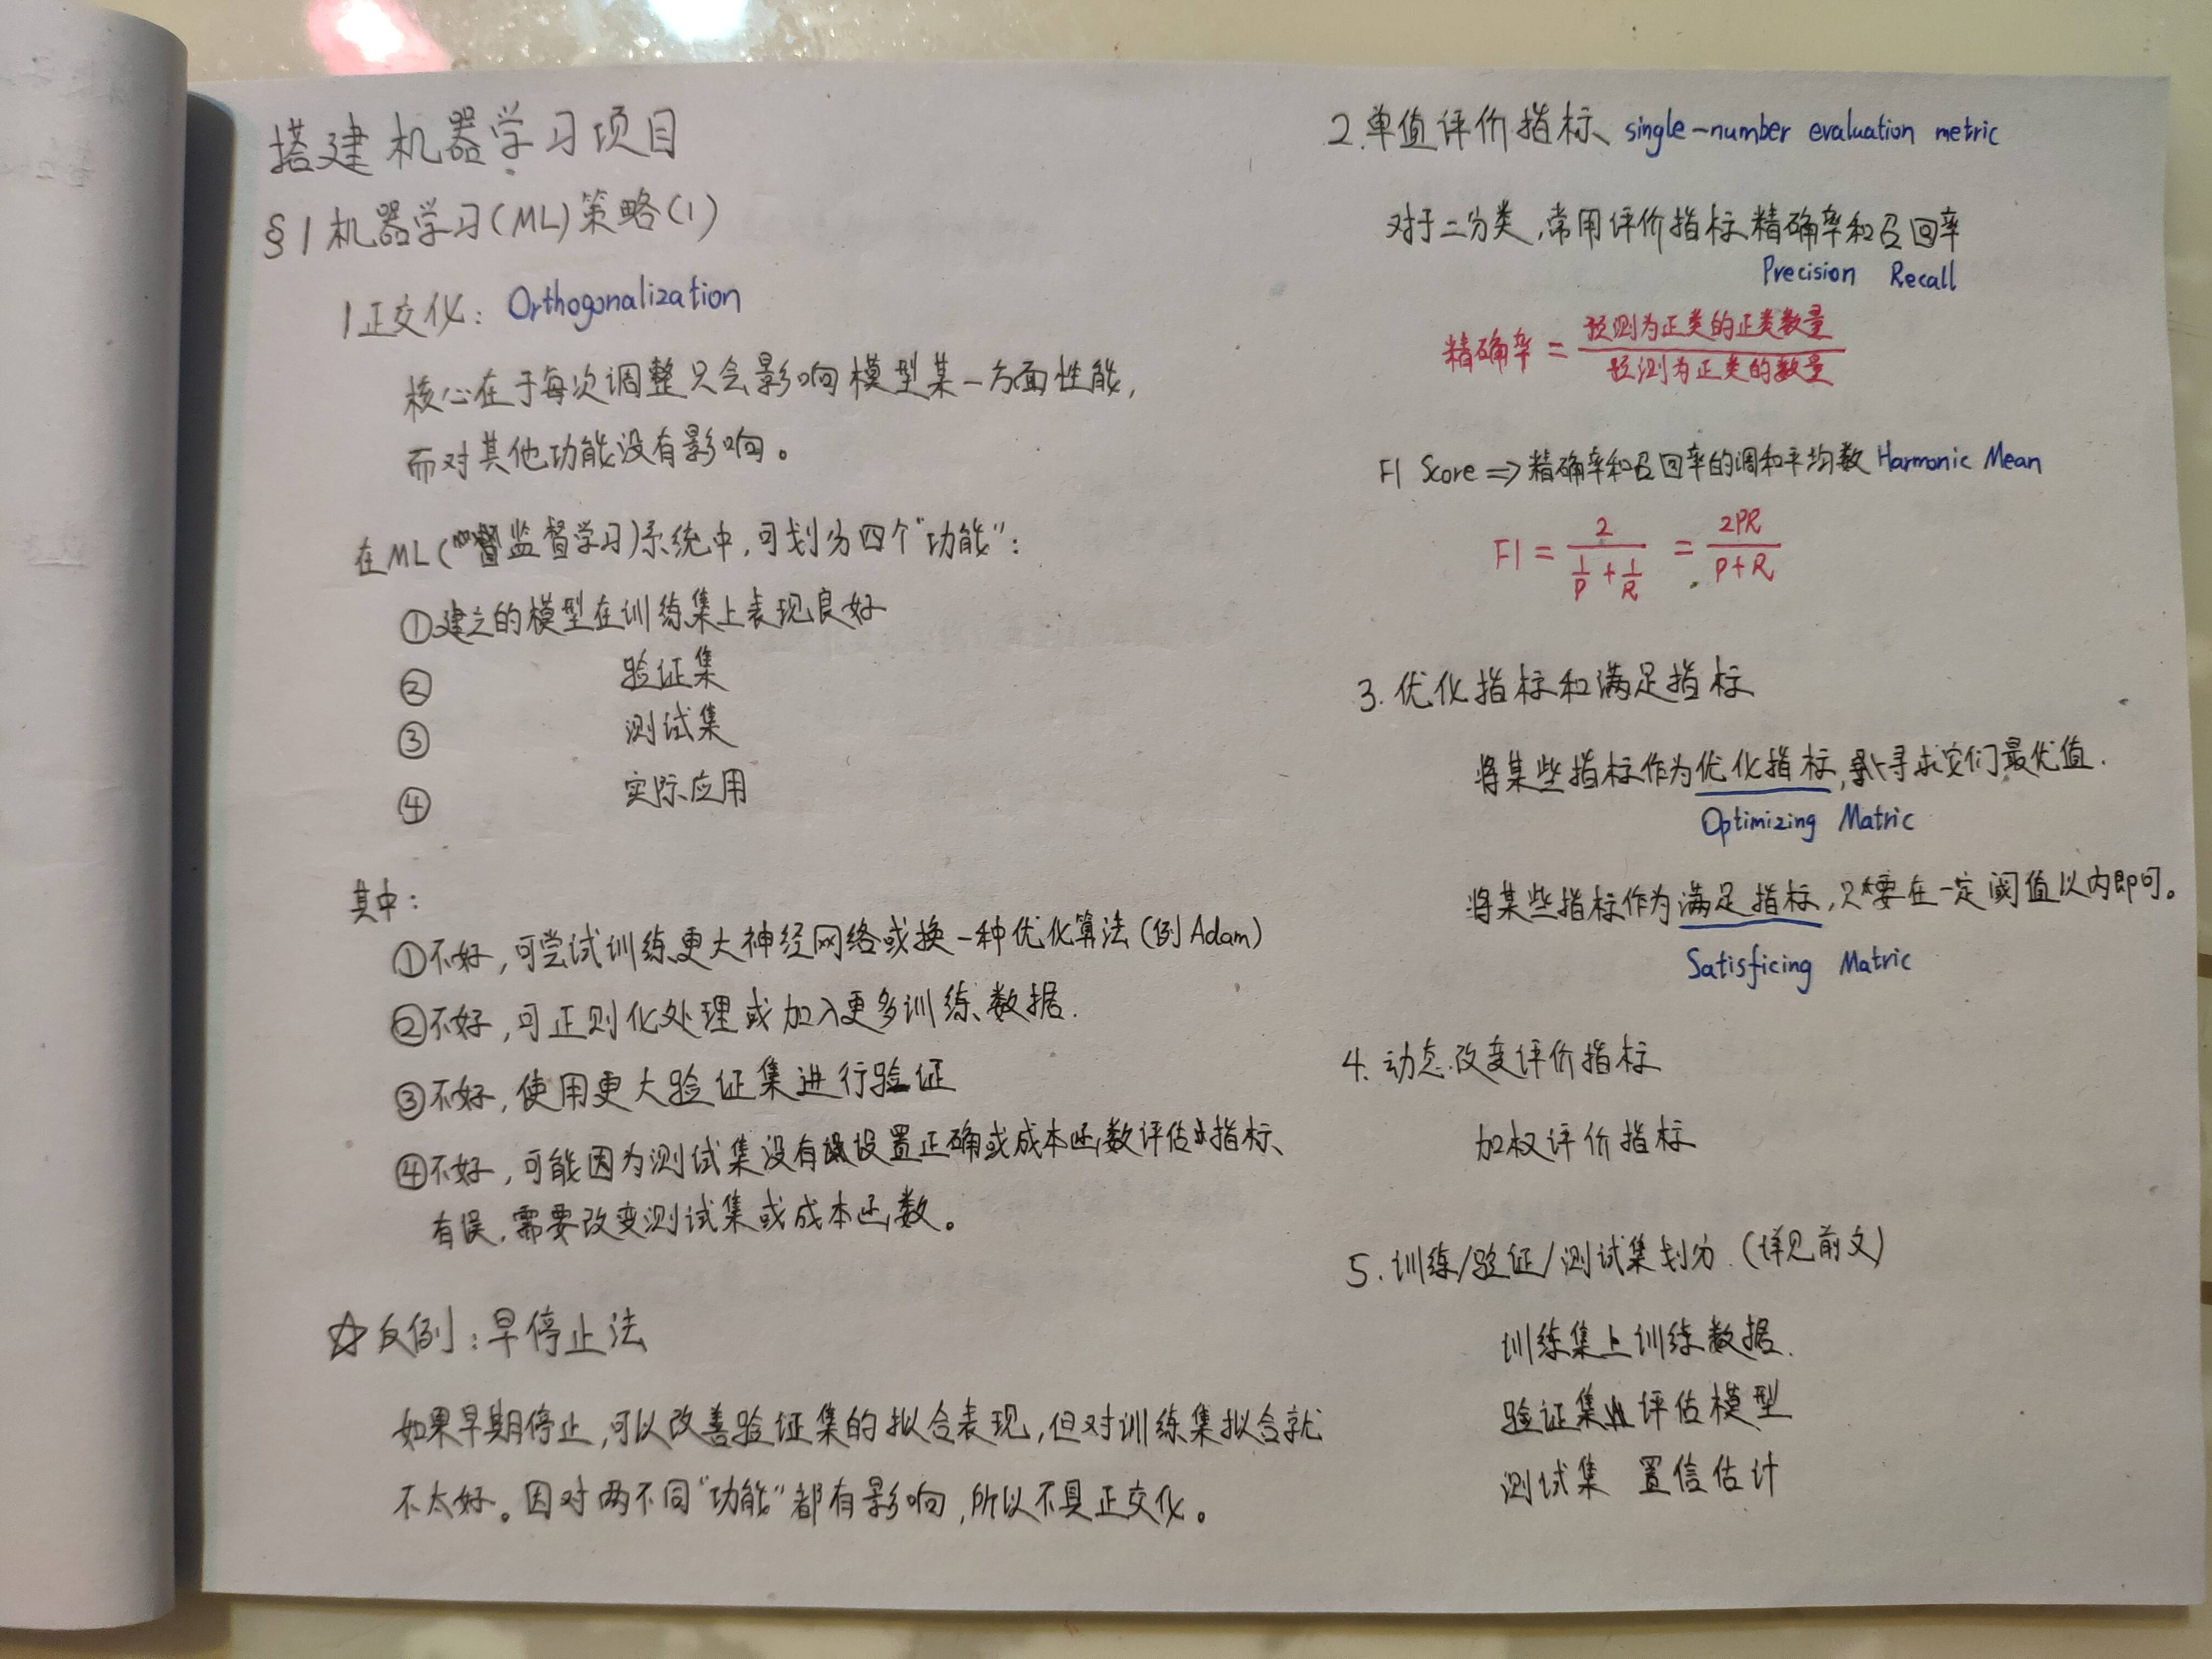 搭建机器学习项目
§1 机器学习(ML)策略(1)
1 正交化: Orthogonalization
核心在于每次调整只会影响模型某一方面性能,
而对其他功能没有影响。
在ML(监督学习)系统中,可划分四个"功能":
①建立的模型在训练集上表现良好
② 验证集
③ 测试集
④ 实际应用
其中:
①不好,可尝试训练更大神经网络或换一种优化算法(例Adam)
②不好,可正则化处理或加入更多训练数据.
③不好,使用更大验证集进行验证
④不好,可能因为测试集没有设置正确或成本函数评估指标
有误,需要改变测试集或成本函数。
☆反例:早停止法
如果早期停止,可以改善验证集的拟合表现,但对训练集拟合就
不太好。因对两不同"功能"都有影响,所以不具正交化。
2.单值评价指标 single-number evaluation metric
对于二分类,常用评价指标精确率和召回率
Precision Recall
精确率 = 预测为正类的正类数量 / 预测为正类的数量
F1 Score => 精确率和召回率的调和平均数 Harmonic Mean
F1 = 2 / (1/P + 1/R) = 2PR / P+R
3.优化指标和满足指标
将某些指标作为优化指标,寻求它们最优值.
Optimizing Matric
将某些指标作为满足指标,只要在一定阈值以内即可。
Satisficing Matric
4.动态改变评价指标
加权评价指标
5.训练/验证/测试集划分.(详见前文)
训练集上训练数据.
验证集 评估模型
测试集 置信估计